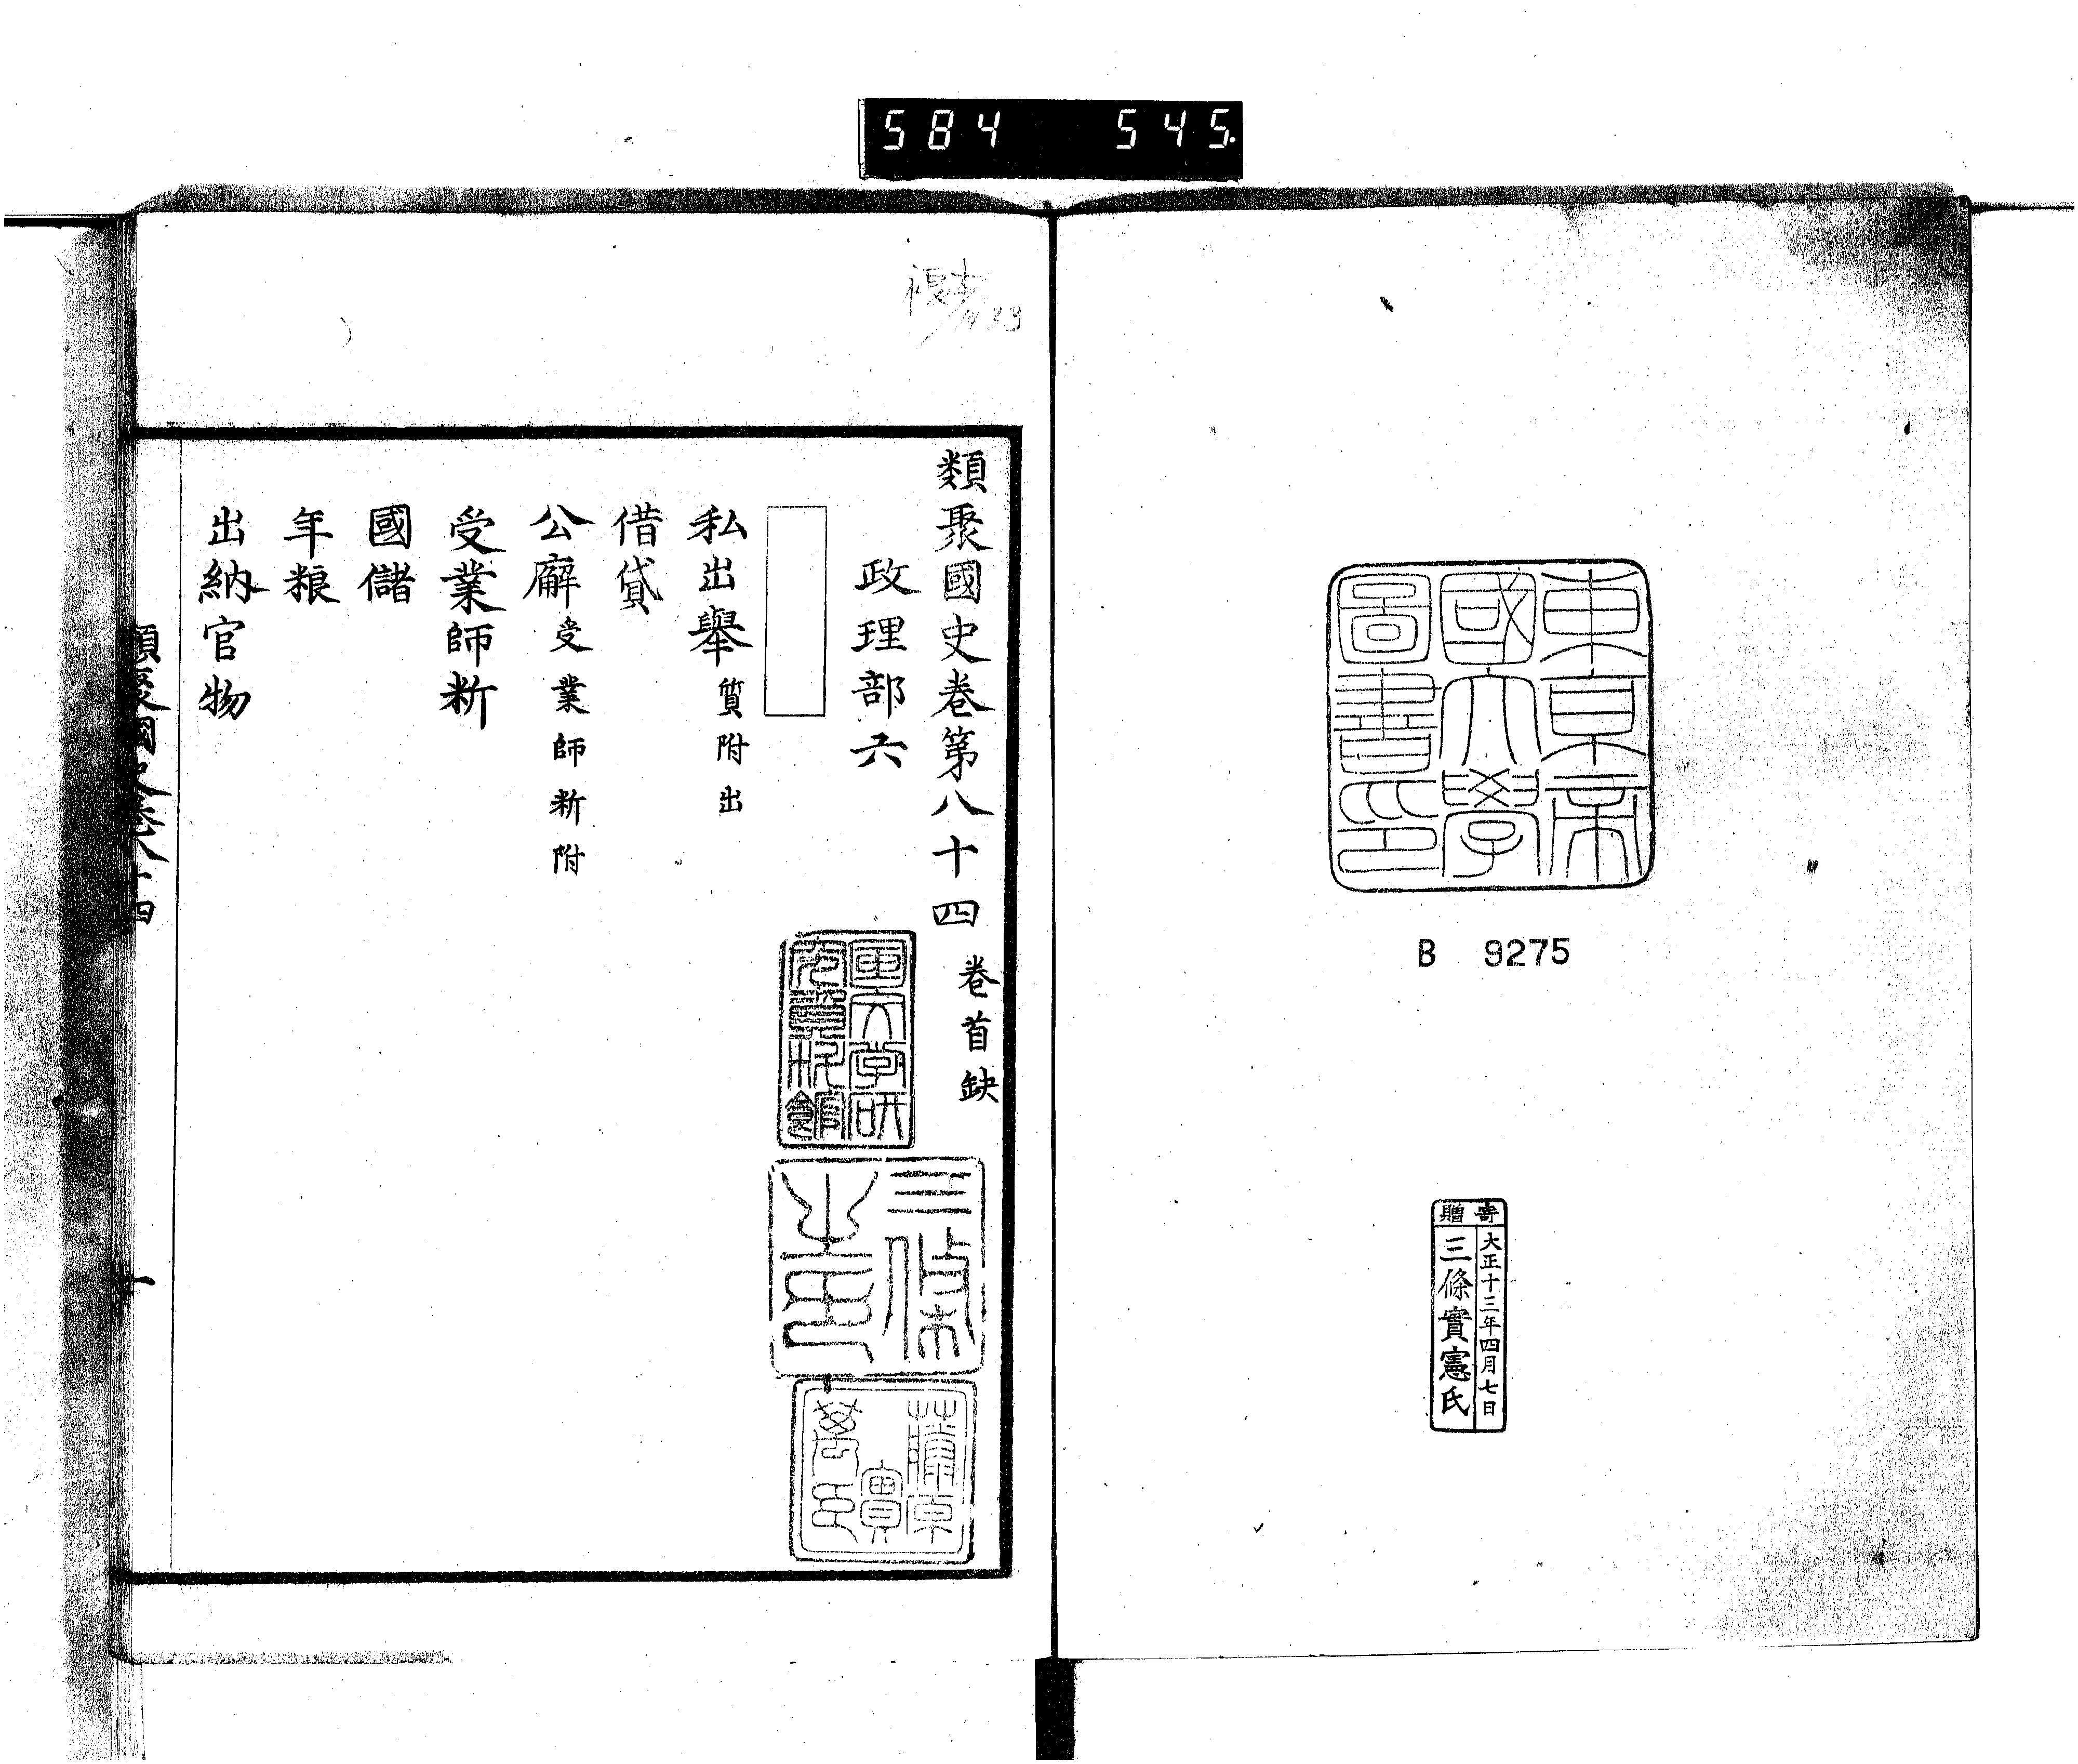 584 545.
東京帝
國大學
圖書印
B 9275
寄贈
大正十三年四月七日
三條實憲氏
類聚國史卷第八十四 卷首缺
政理部六
私出舉 質附出
借貸
公廨 受業師料附
受業師料
國儲
年粮
出納官物
國文学研
究資料館
三條
藤原
實
萬
類聚國史卷八十四
一